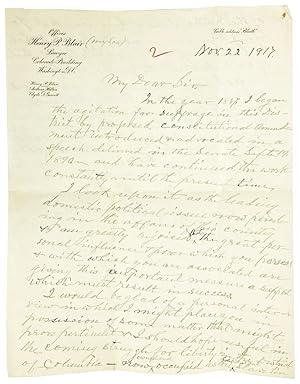 Offices
Henry P. Blair (my son)
Lawyer
Colorado Building
Washington D.C.
Henry P. Blair
Cable address "Blair"
2
Nov 22 1917.
My Dear Sir
In the year 18 I began
the agitation for suffrage in this Dis-
trict by proposed constitutional amend-
ment introduced & advocated in a
speech delivered in the Senate Sept
1890 - and have continued the work
constantly until the present time.
I look upon it as the leading
domestic political issue now pend-
ing in the affairs of this country
& am greatly rejoiced the great per-
sonal influence & power which you possess
& with which you are associated are
giving this important measure a support
which must result in success.
I would be glad of a personal inter-
view in which I might place you in
possession of some matter that might
prove pertinent & I should hope useful in
the coming struggle for liberty in the District
of Columbia - now occupied